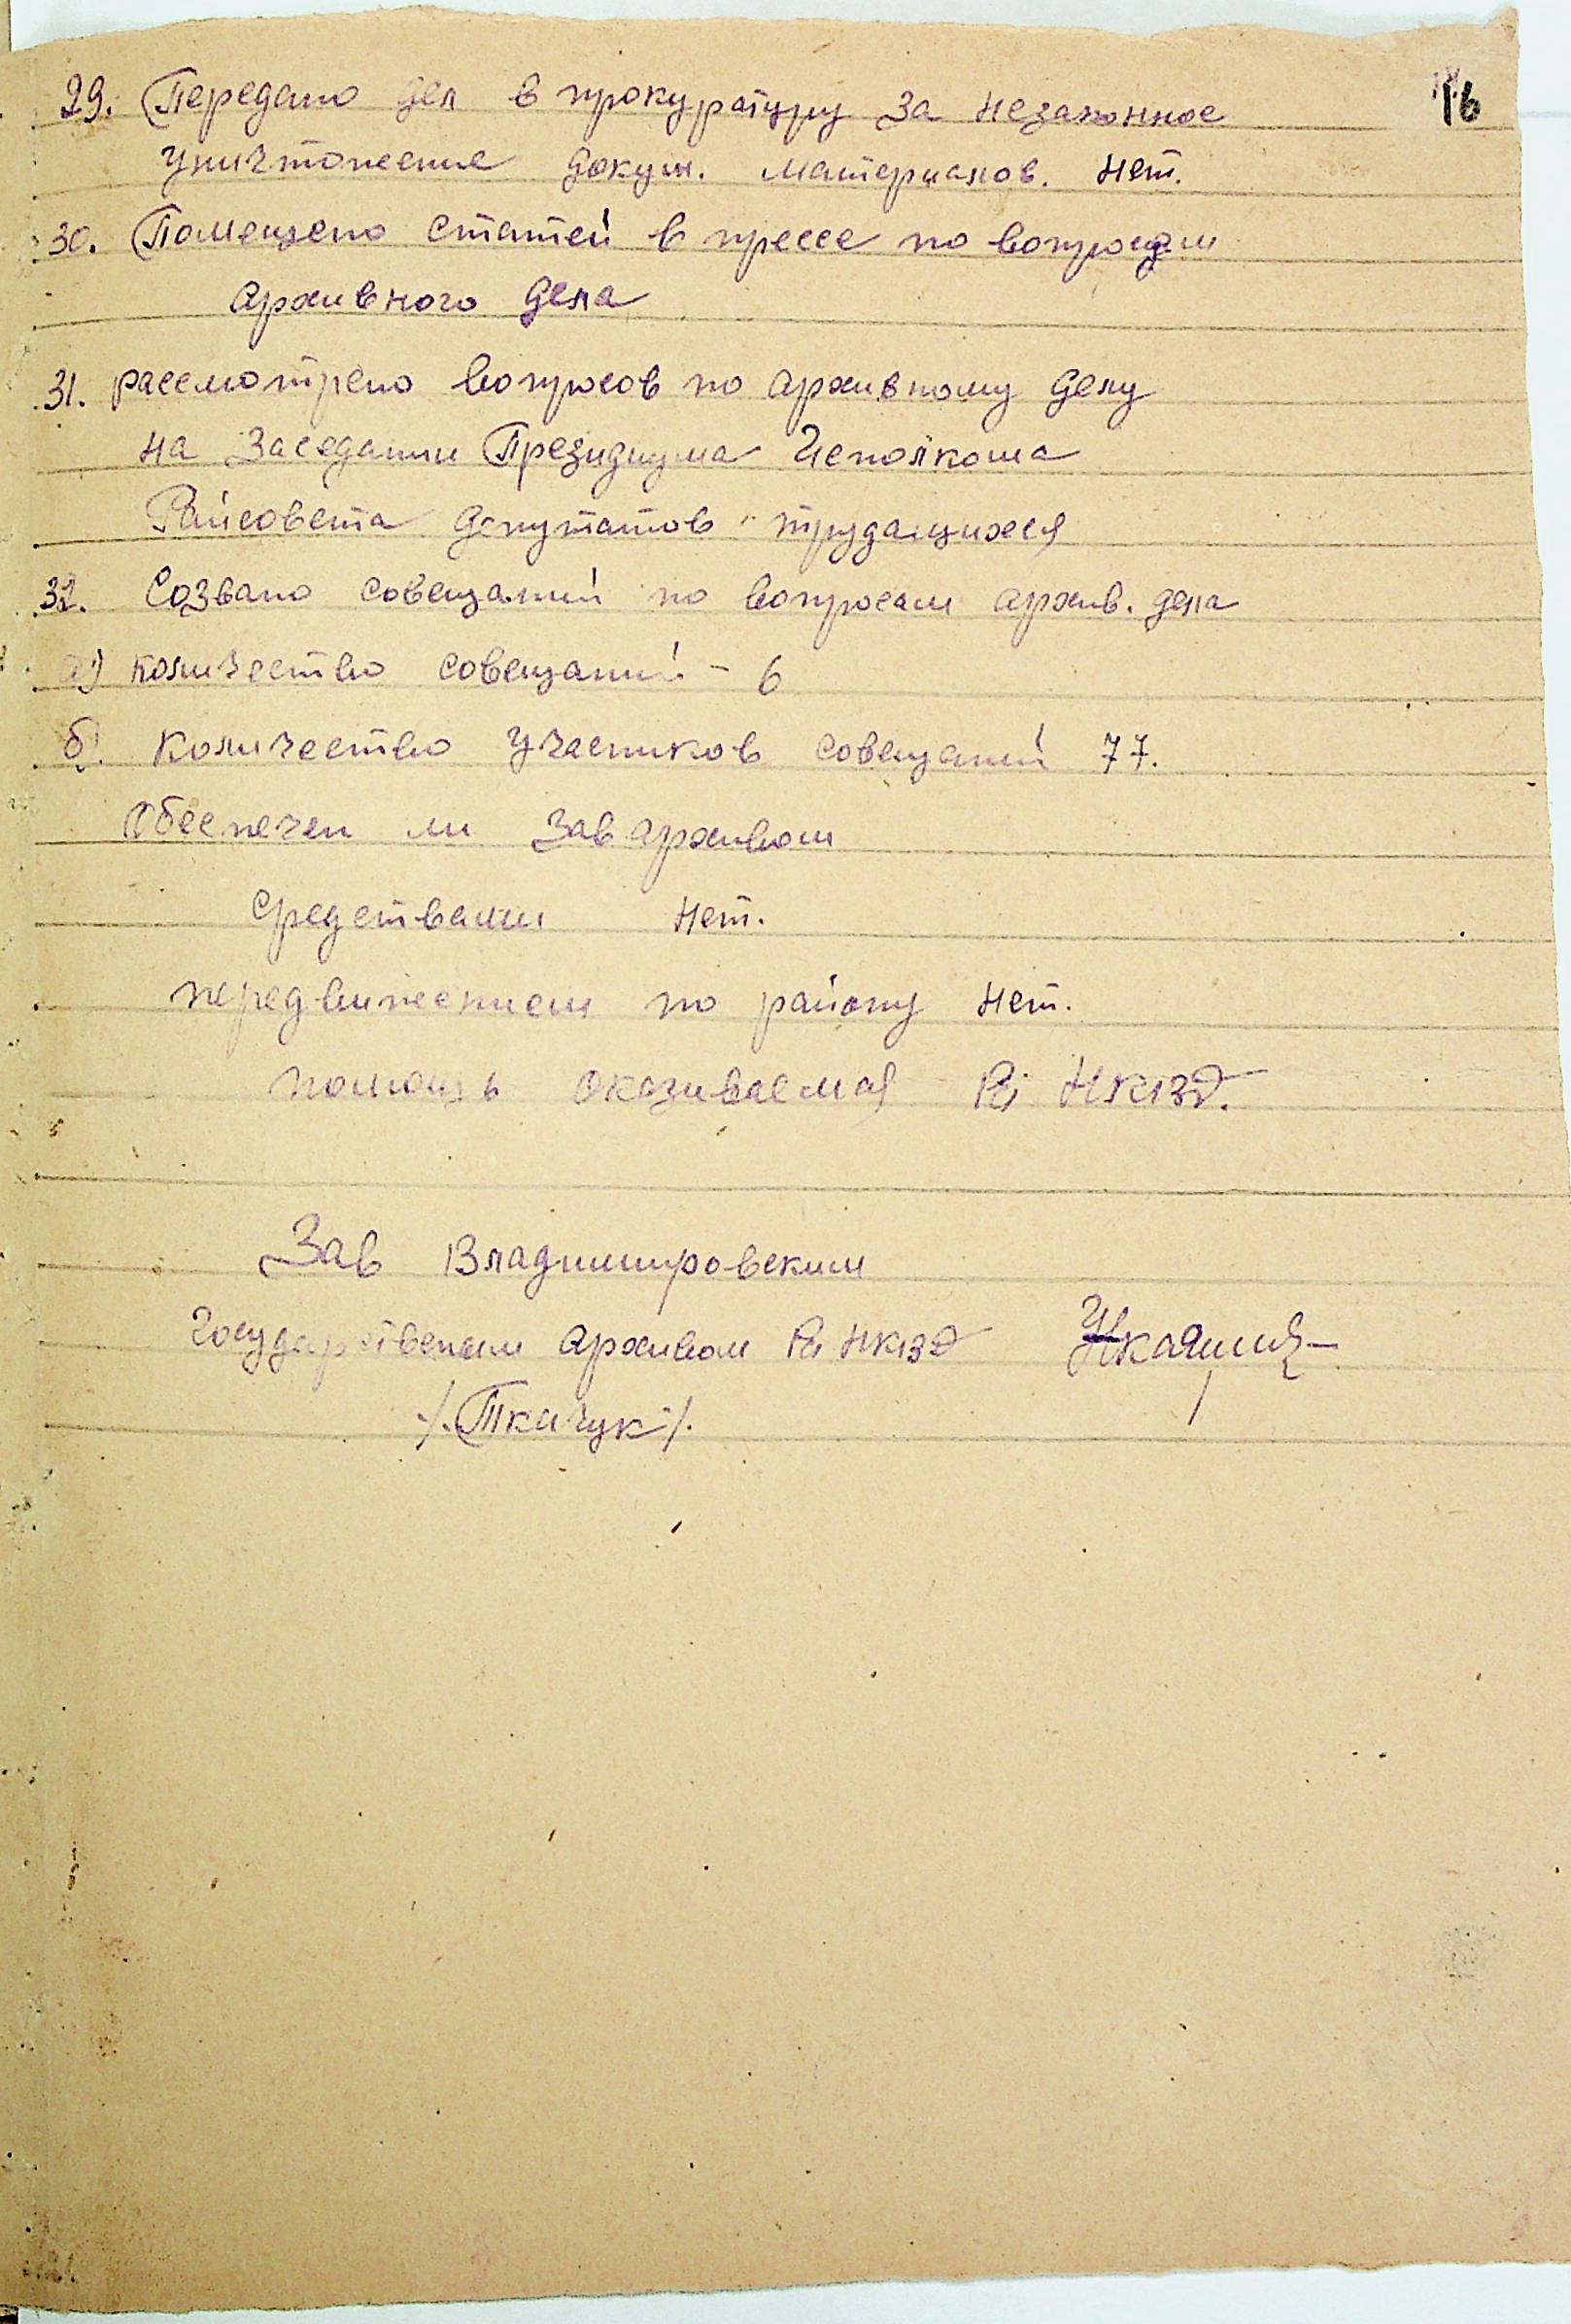 16
29. Передано дел в прокуратуру за незаконное
уничтожение докум. материалов. нет.
30. Помещено статей в прессе по вопросам
архивного дела
31. рассмотрено вопросов по архивному делу
на заседании Президиума Исполкома
Райсовета депутатов трудящихся
32. Созвано совещаний по вопросам архив. дела
а) количество совещаний - 6
б). количество участников совещаний 77.
Обеспечен ли зав архивом
средствами нет.
передвижением по району нет.
помощь оказиваемая РО НКВД.
Зав Владимировским
Государственым архивом РО НКВД
/.Ткачук/.